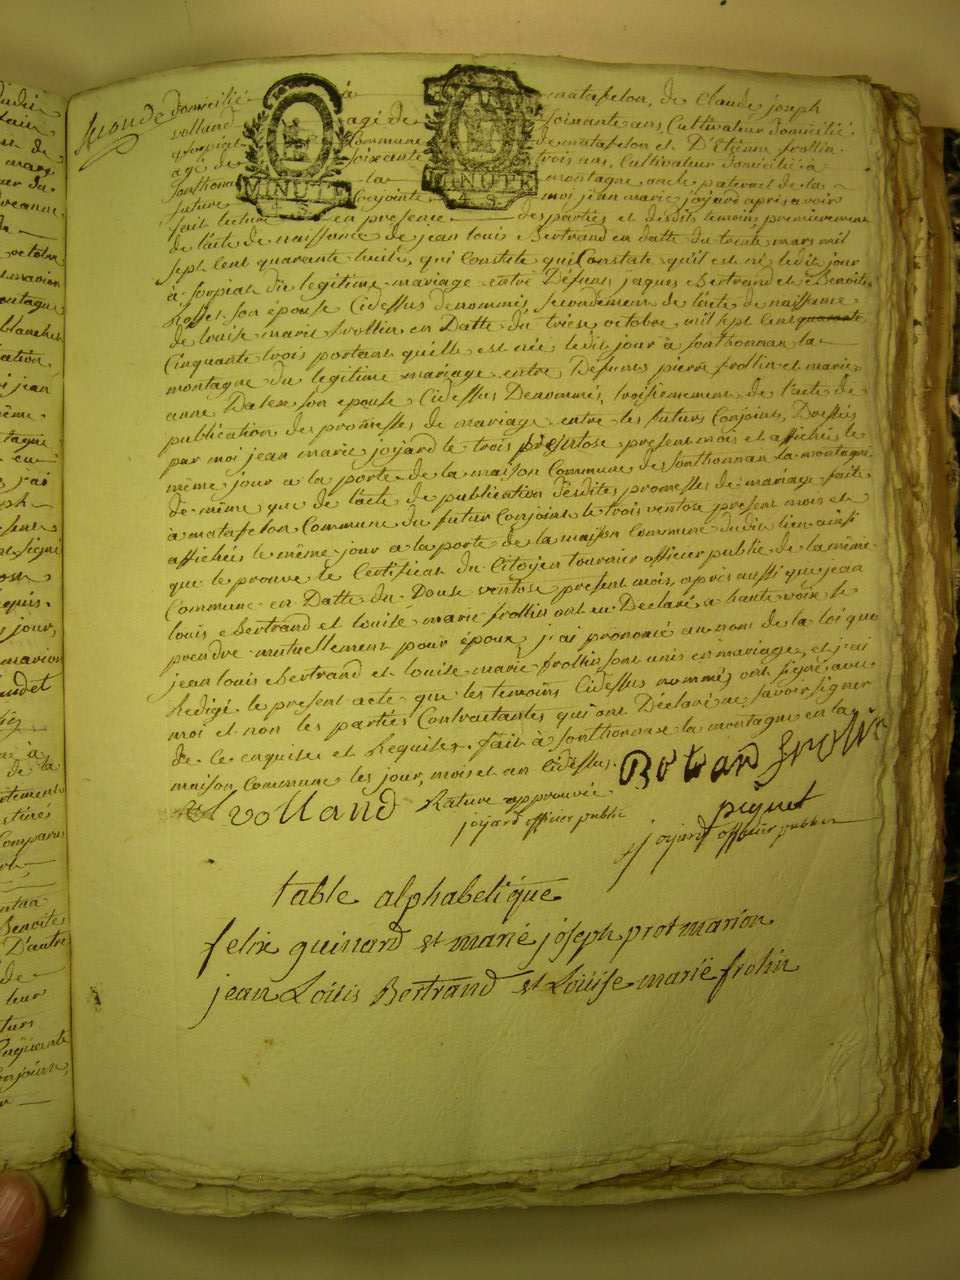 seconde domicilié à matafelon, de Claude joseph
volland agé de soixante ans, Cultivateur domicilié
Commune de matafelon et D'Etienne frollin
agé de soixante trois ans, Cultivateur domicilié à
sonthona la montagne, oncle paternel de la
future Conjointe moi jean marie joyard après avoir
fait lecture en presence des parties et desdits temoins, premierement
MINUTE
MINUTE
de l'acte de naissance de jean louis Bertrand en datte du trente mars mil
sept cent quarante huit, qui Constate qui Constate qu'il est né ledit jour
à du legitime mariage entre Défunts jaques Bertrand et Benoite
son épouse Cidessus denommés, secondement de l'acte de naissance
de louise marie frollin en Datte du treize octobre mil sept cent quarante
Cinquante trois portant qu'elle est née ledit jour à sonthonnan la
montagne du legitime mariage entre Défunts pierre frollin et marie
anne Dalex son épouse Cidessus Denommés, troisiemement de l'acte de
publication des promesses de mariage entre les futurs Conjoints, Dressés
par moi jean marie joyard le trois ventose present mois et affichés le
même jour a la porte de la maison Commune de sonthonnan la montagne
de même que de l'acte de publication desdites promesses de mariage fait
à matafelon Commune du futur Conjoint le trois ventose present mois et
affichés le même jour a la porte de la maison Commune dudit lieu ainsi
que le prouve le Certificat du Citoyen tournier officier public de la même
Commune en Datte du Douse ventose present mois, après aussi que jean
louis Bertrand et louise marie frollin ont eu Declaré a haute voix se
prendre mutuellement pour époux, j'ai prononcé au nom de la loi que
jean louis Bertrand et louise marie frollin sont unis en mariage, et j'ai
Redigé le present acte que les temoins Cidessus nommés ont signé avec
moi et non les parties Contractantes qui ont Déclaré ne savoir signer
de ce enquises et Requises. fait à sonthonnan la montagne en la
maison Commune les jour, mois et an Cidessus. Bertrand
volland Rature approuvée piquet
joyard officier public joyard officier public
table alphabetique
felix guinard et marie joseph prot marion
jean Louis Bertrand et Louise marie frolin